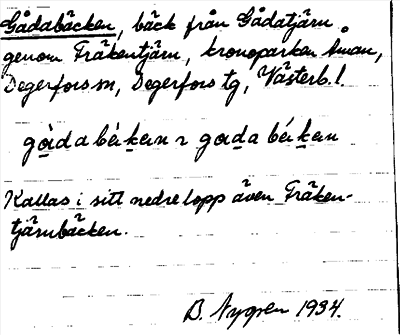 Gådabäcken, bäck från Gådatjärn
genom Fräkentjärn, kronoparken Åman,
Degerfors sn, Degerfors tg, Västerb. l.
Kallas i sitt nedre lopp även Fräken-
tjärnbäcken.
B. Nygren 1934.